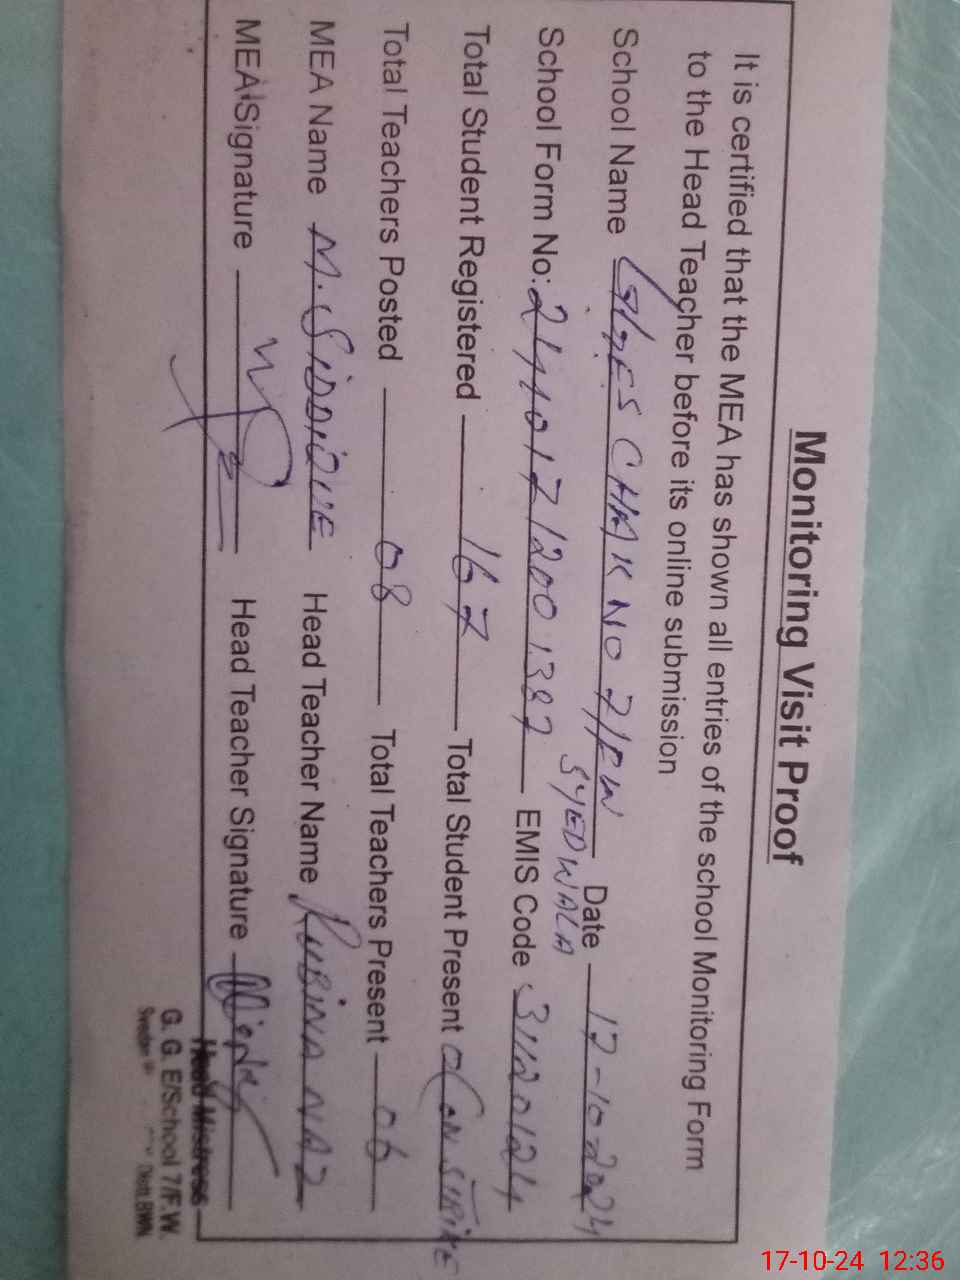 Monitoring Visit Proof
It is certified that the MEA has shown all entries of the school Monitoring Form
to the Head Teacher before its online submission
School Name GGES CHAK NO 7/FW Date 17-10-2024
SYEDWALA
School Form No: 24101712001387 EMIS Code 31120124
Total Student Registered 167 Total Student Present 0 (ON STRIKE
Total Teachers Posted 08 Total Teachers Present 06
MEA Name M. SIDDIQUE Head Teacher Name RUBINA NAZ
MEA Signature Head Teacher Signature
Head Mistress
G. G. E/School 7/F.W.
Distt. BWN
17-10-24 12:36